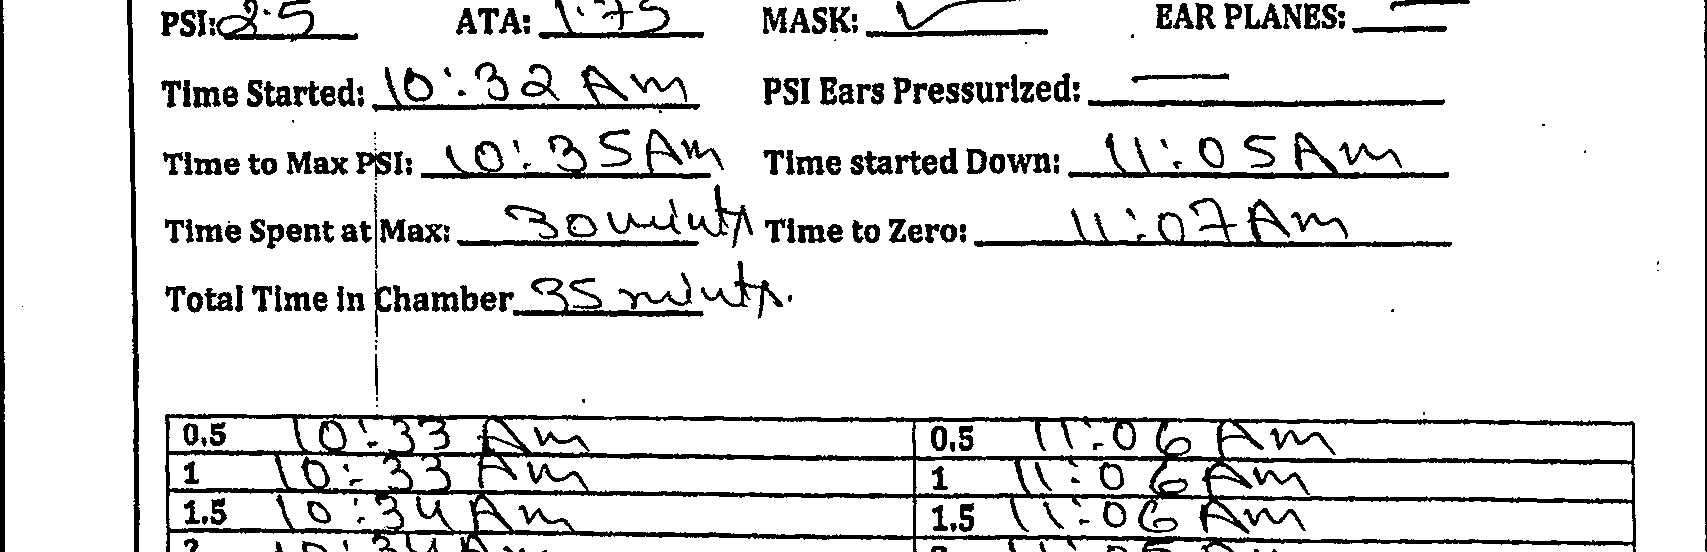 PSI: 2.5 ATA: 1.75 MASK: ✓ EAR PLANES: —
Time Started: 10:32 Am PSI Ears Pressurized: —
Time to Max PSI: 10:35 Am Time started Down: 11:05 Am
Time Spent at Max: 30 minuts Time to Zero: 11:07 Am
Total Time in Chamber 35 minuts.
0.5 10:33 Am 0.5 11:06 Am
1 10:33 Am 1 11:06 Am
1.5 10:34 Am 1.5 11:06 Am